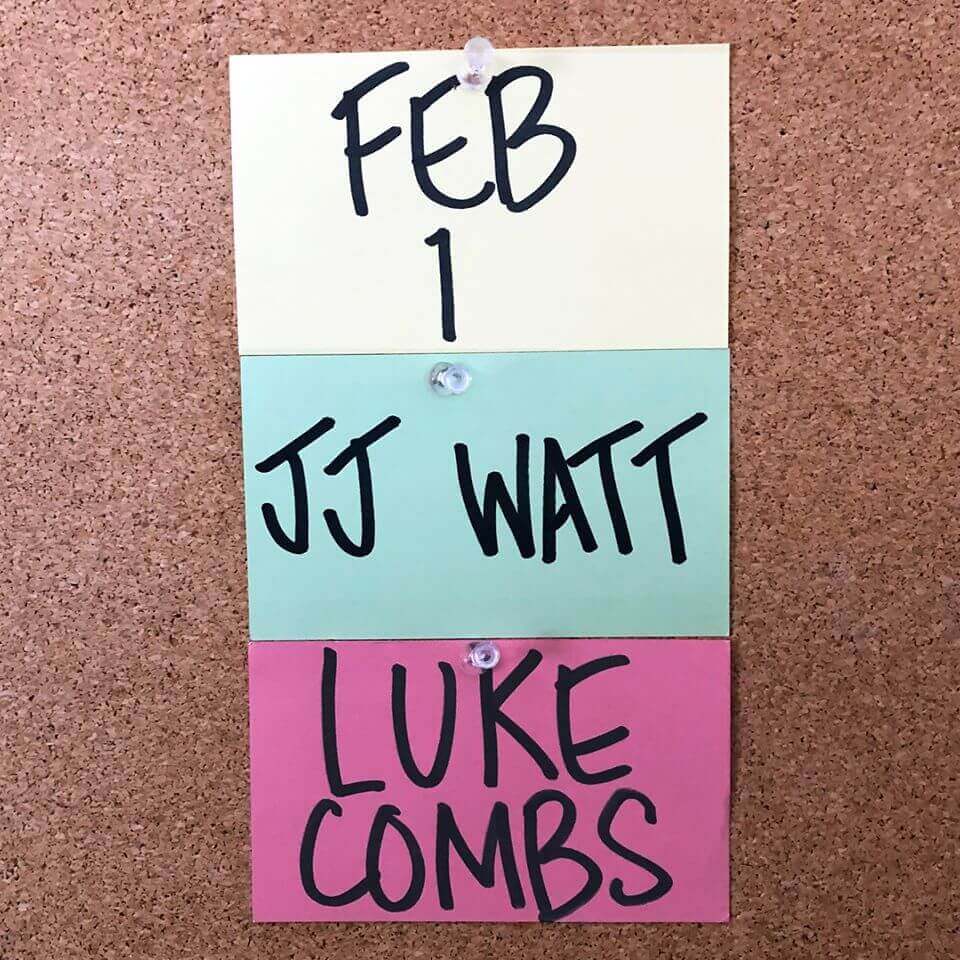 FEB
1
JJ WATT
LUKE
COMBS